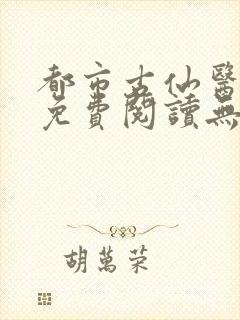 都市古仙醫
免費閱讀無
胡萬荣